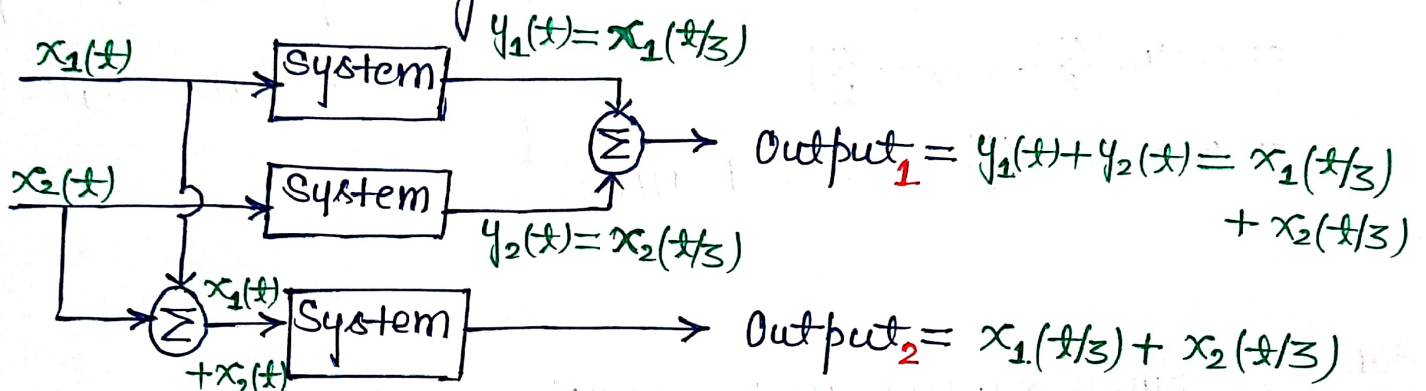 y₁(t)=x₁(t/3)
x₁(t)
System
Output₁ = y₁(t)+y₂(t)= x₁(t/3)
+ x₂(t/3)
x₂(t)
System
y₂(t)=x₂(t/3)
Σ
x₁(t)
+x₂(t)
Σ
System
Output₂= x₁.(t/3)+ x₂(t/3)